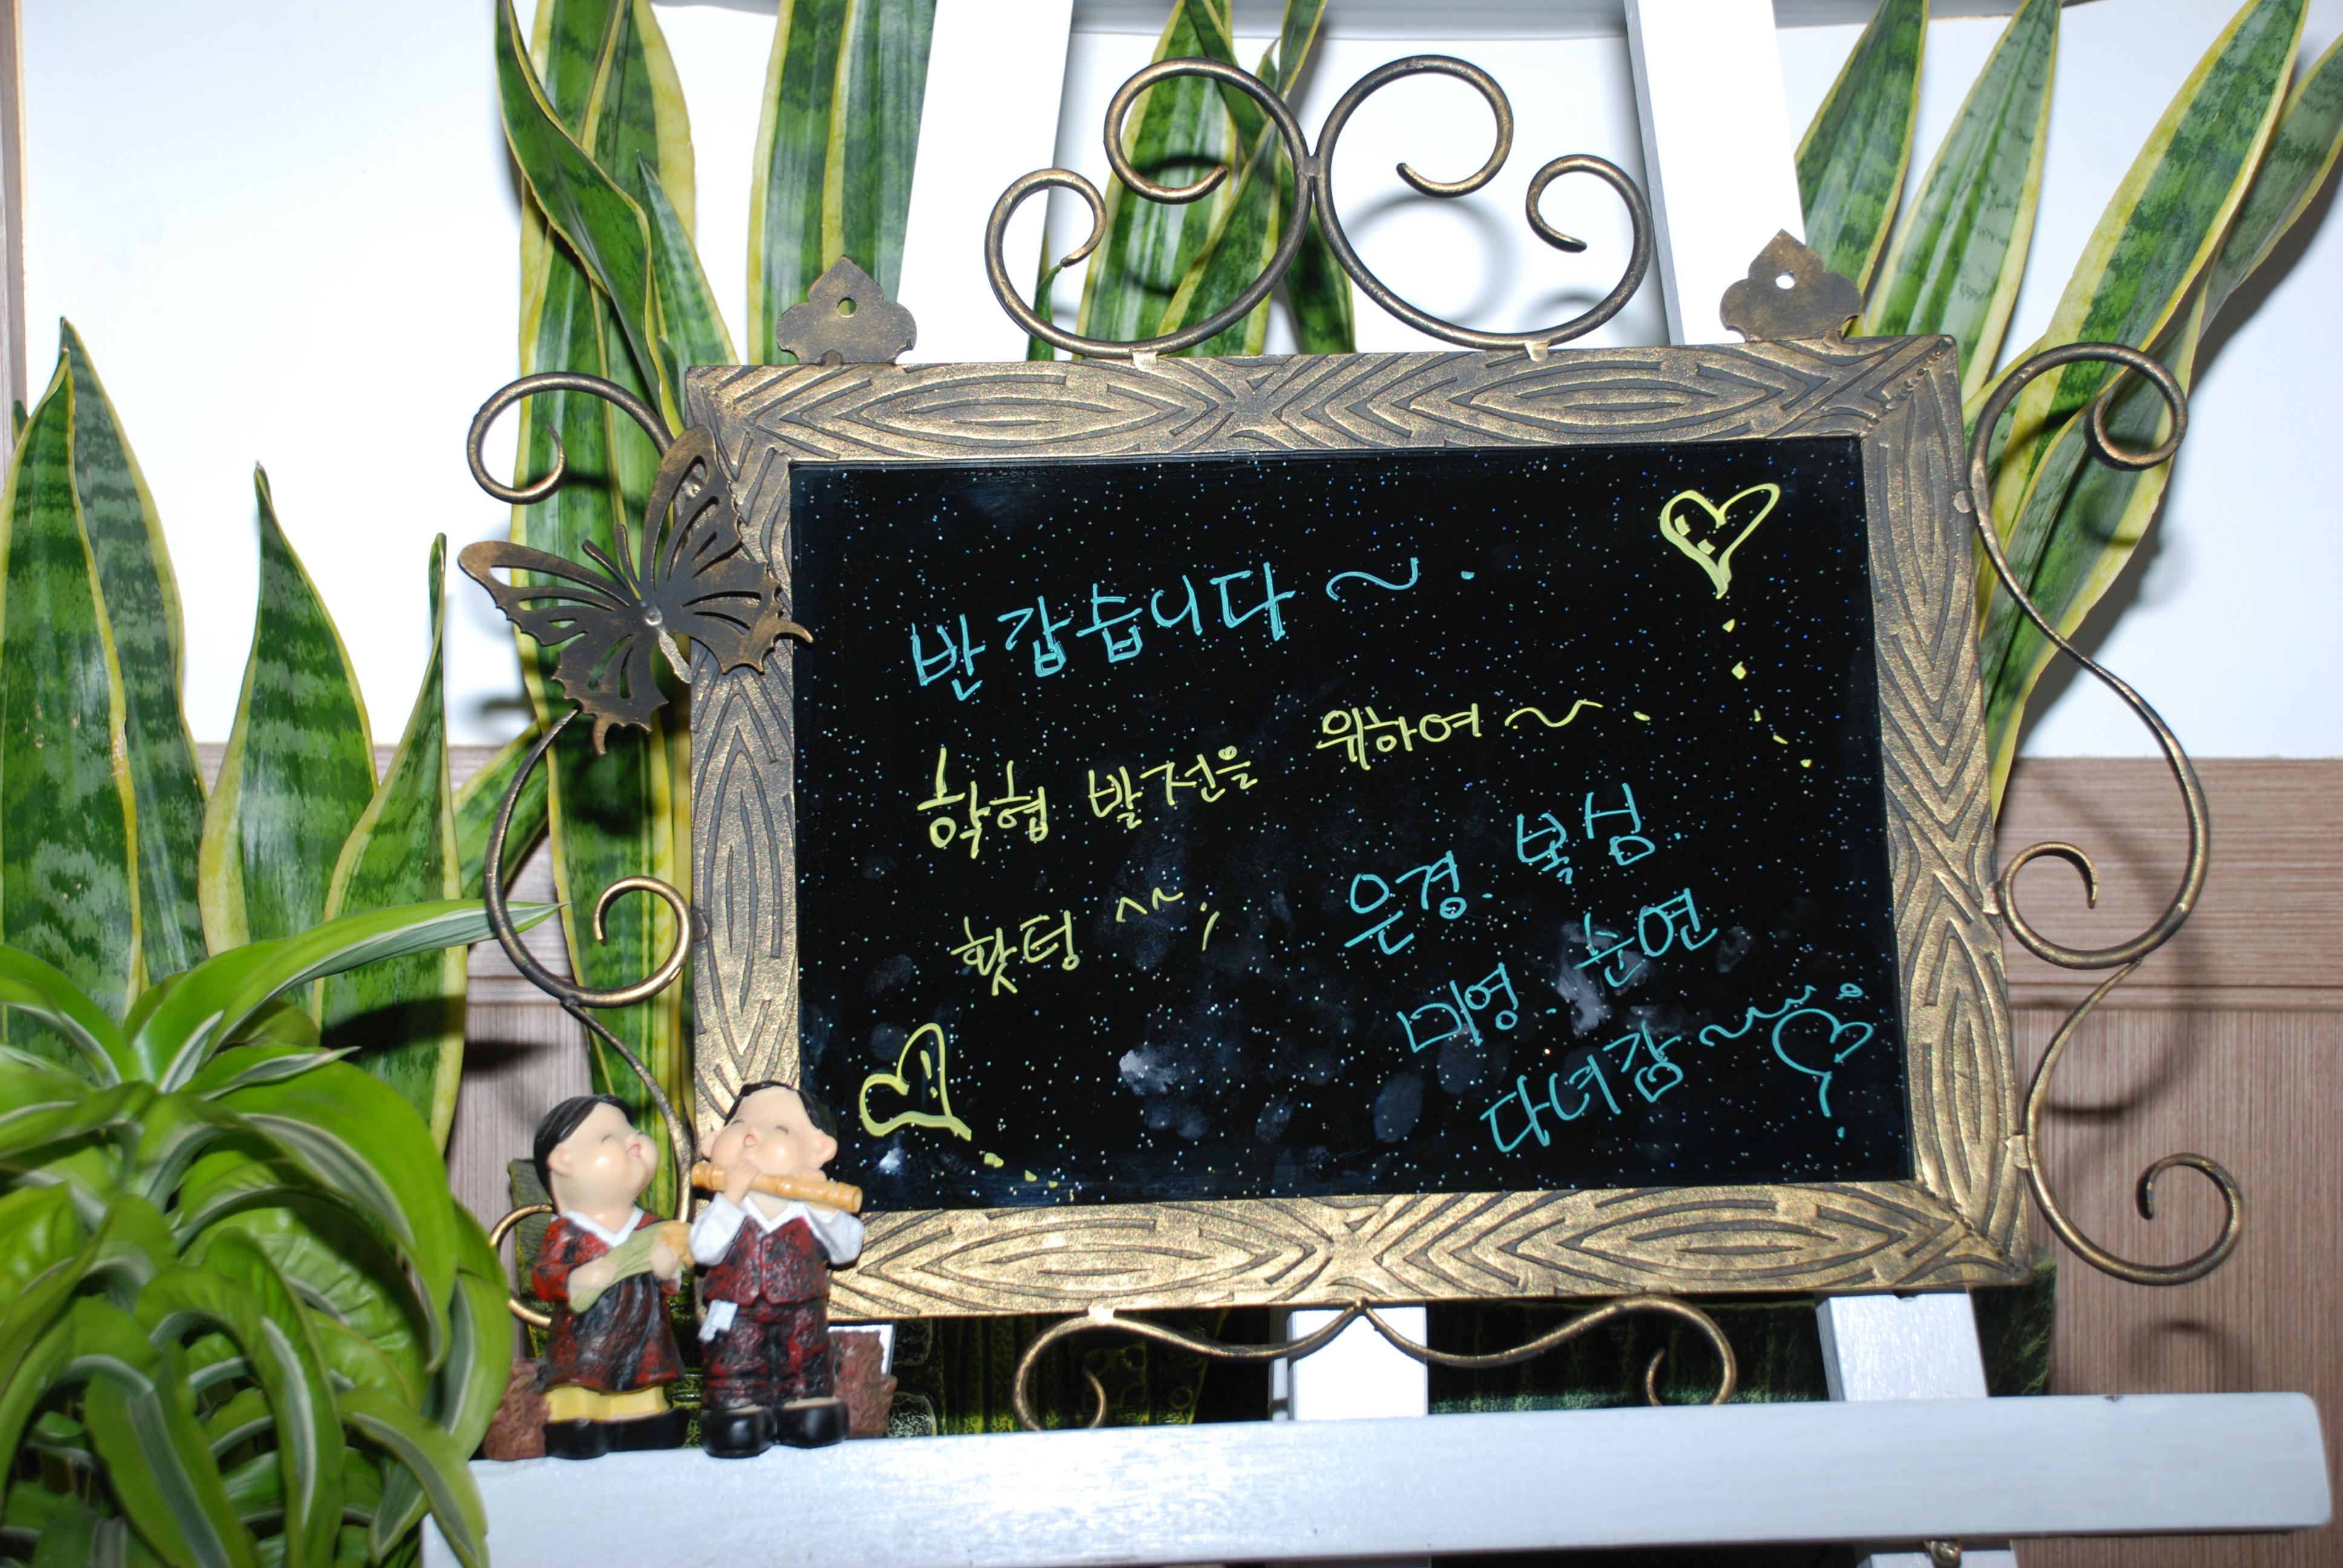 반갑습니다~.
학협 발전을 위하여~.
홧팅 ^^;
은경. 복성.
미영. 순연
다녀감~